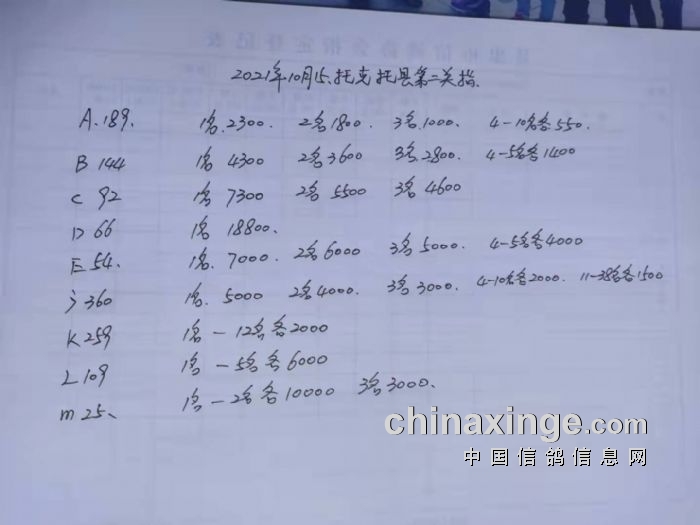 2021年10月15、托克托县第二关指.
A.189. 1名.2300. 2名1800. 3名1000. 4-10名各550.
B 144 1名 4300 2名3600 3名2800. 4-5名各1400
C 92 1名 7300 2名 5500 3名 4600
D 66 1名 18800.
E 54. 1名. 7000. 2名 6000 3名 5000. 4-5名各4000
J 360 1名. 5000 2名4000. 3名 3000. 4-10名各2000. 11-38名各1500
K 259 1名-12名各2000
L 109 1名-5名各6000
m 25、 1名-2名各10000 3名3000.
chinaxinge.com
中国信鸽信息网